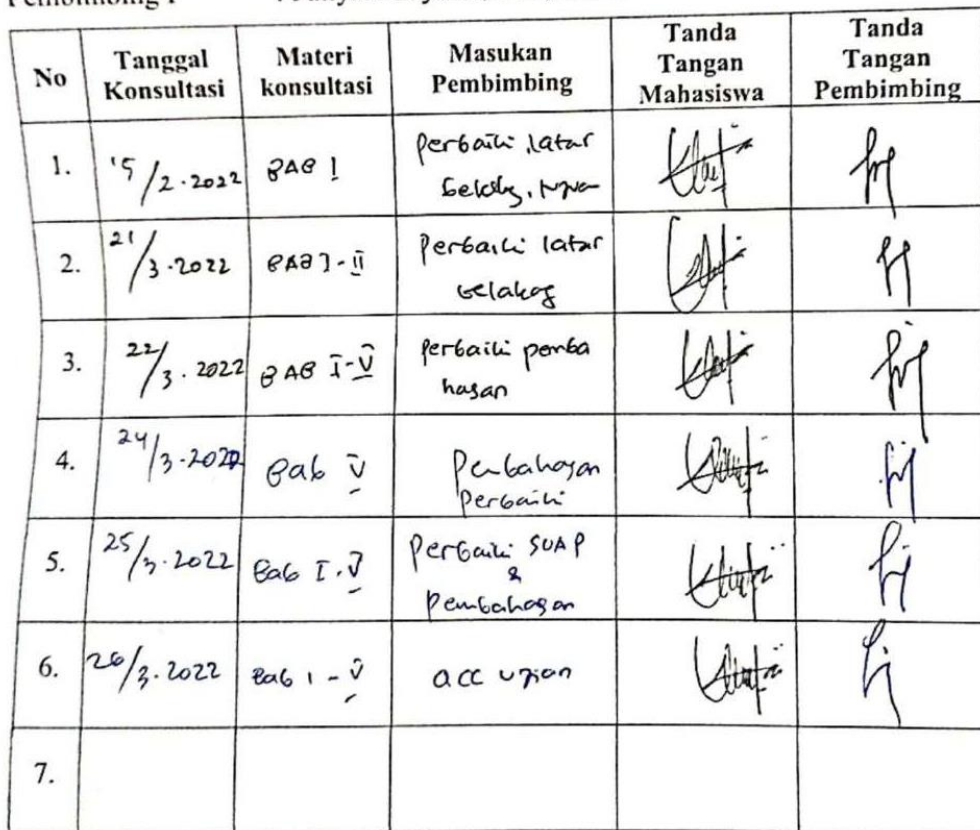 No
Tanggal Konsultasi
Materi konsultasi
Masukan Pembimbing
Tanda Tangan Mahasiswa
Tanda Tangan Pembimbing
1. 15/2.2022 BAB I Perbaiki latar
belakg, tujuan
2. 21/3.2022 BAB I-II Perbaiki latar
belakag
3. 22/3.2022 BAB I-V Perbaiki pemba
hasan
4. 24/3.2022 Bab V Pembahasan
Perbaiki
5. 25/3.2022 Bab I.V Perbaiki SOAP
&
Pembahasan
6. 26/3.2022 Bab I-V acc ujian
7.